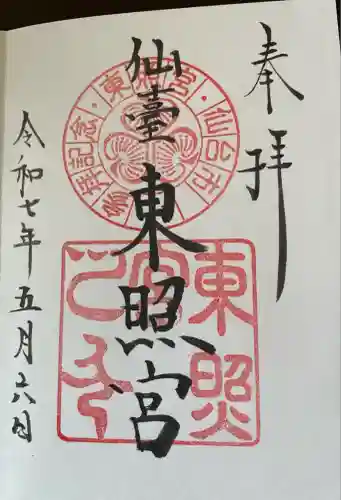 奉拝
仙臺東照宮
令和七年五月六日
東照宮・仙台市・参拝記念・
東照宮